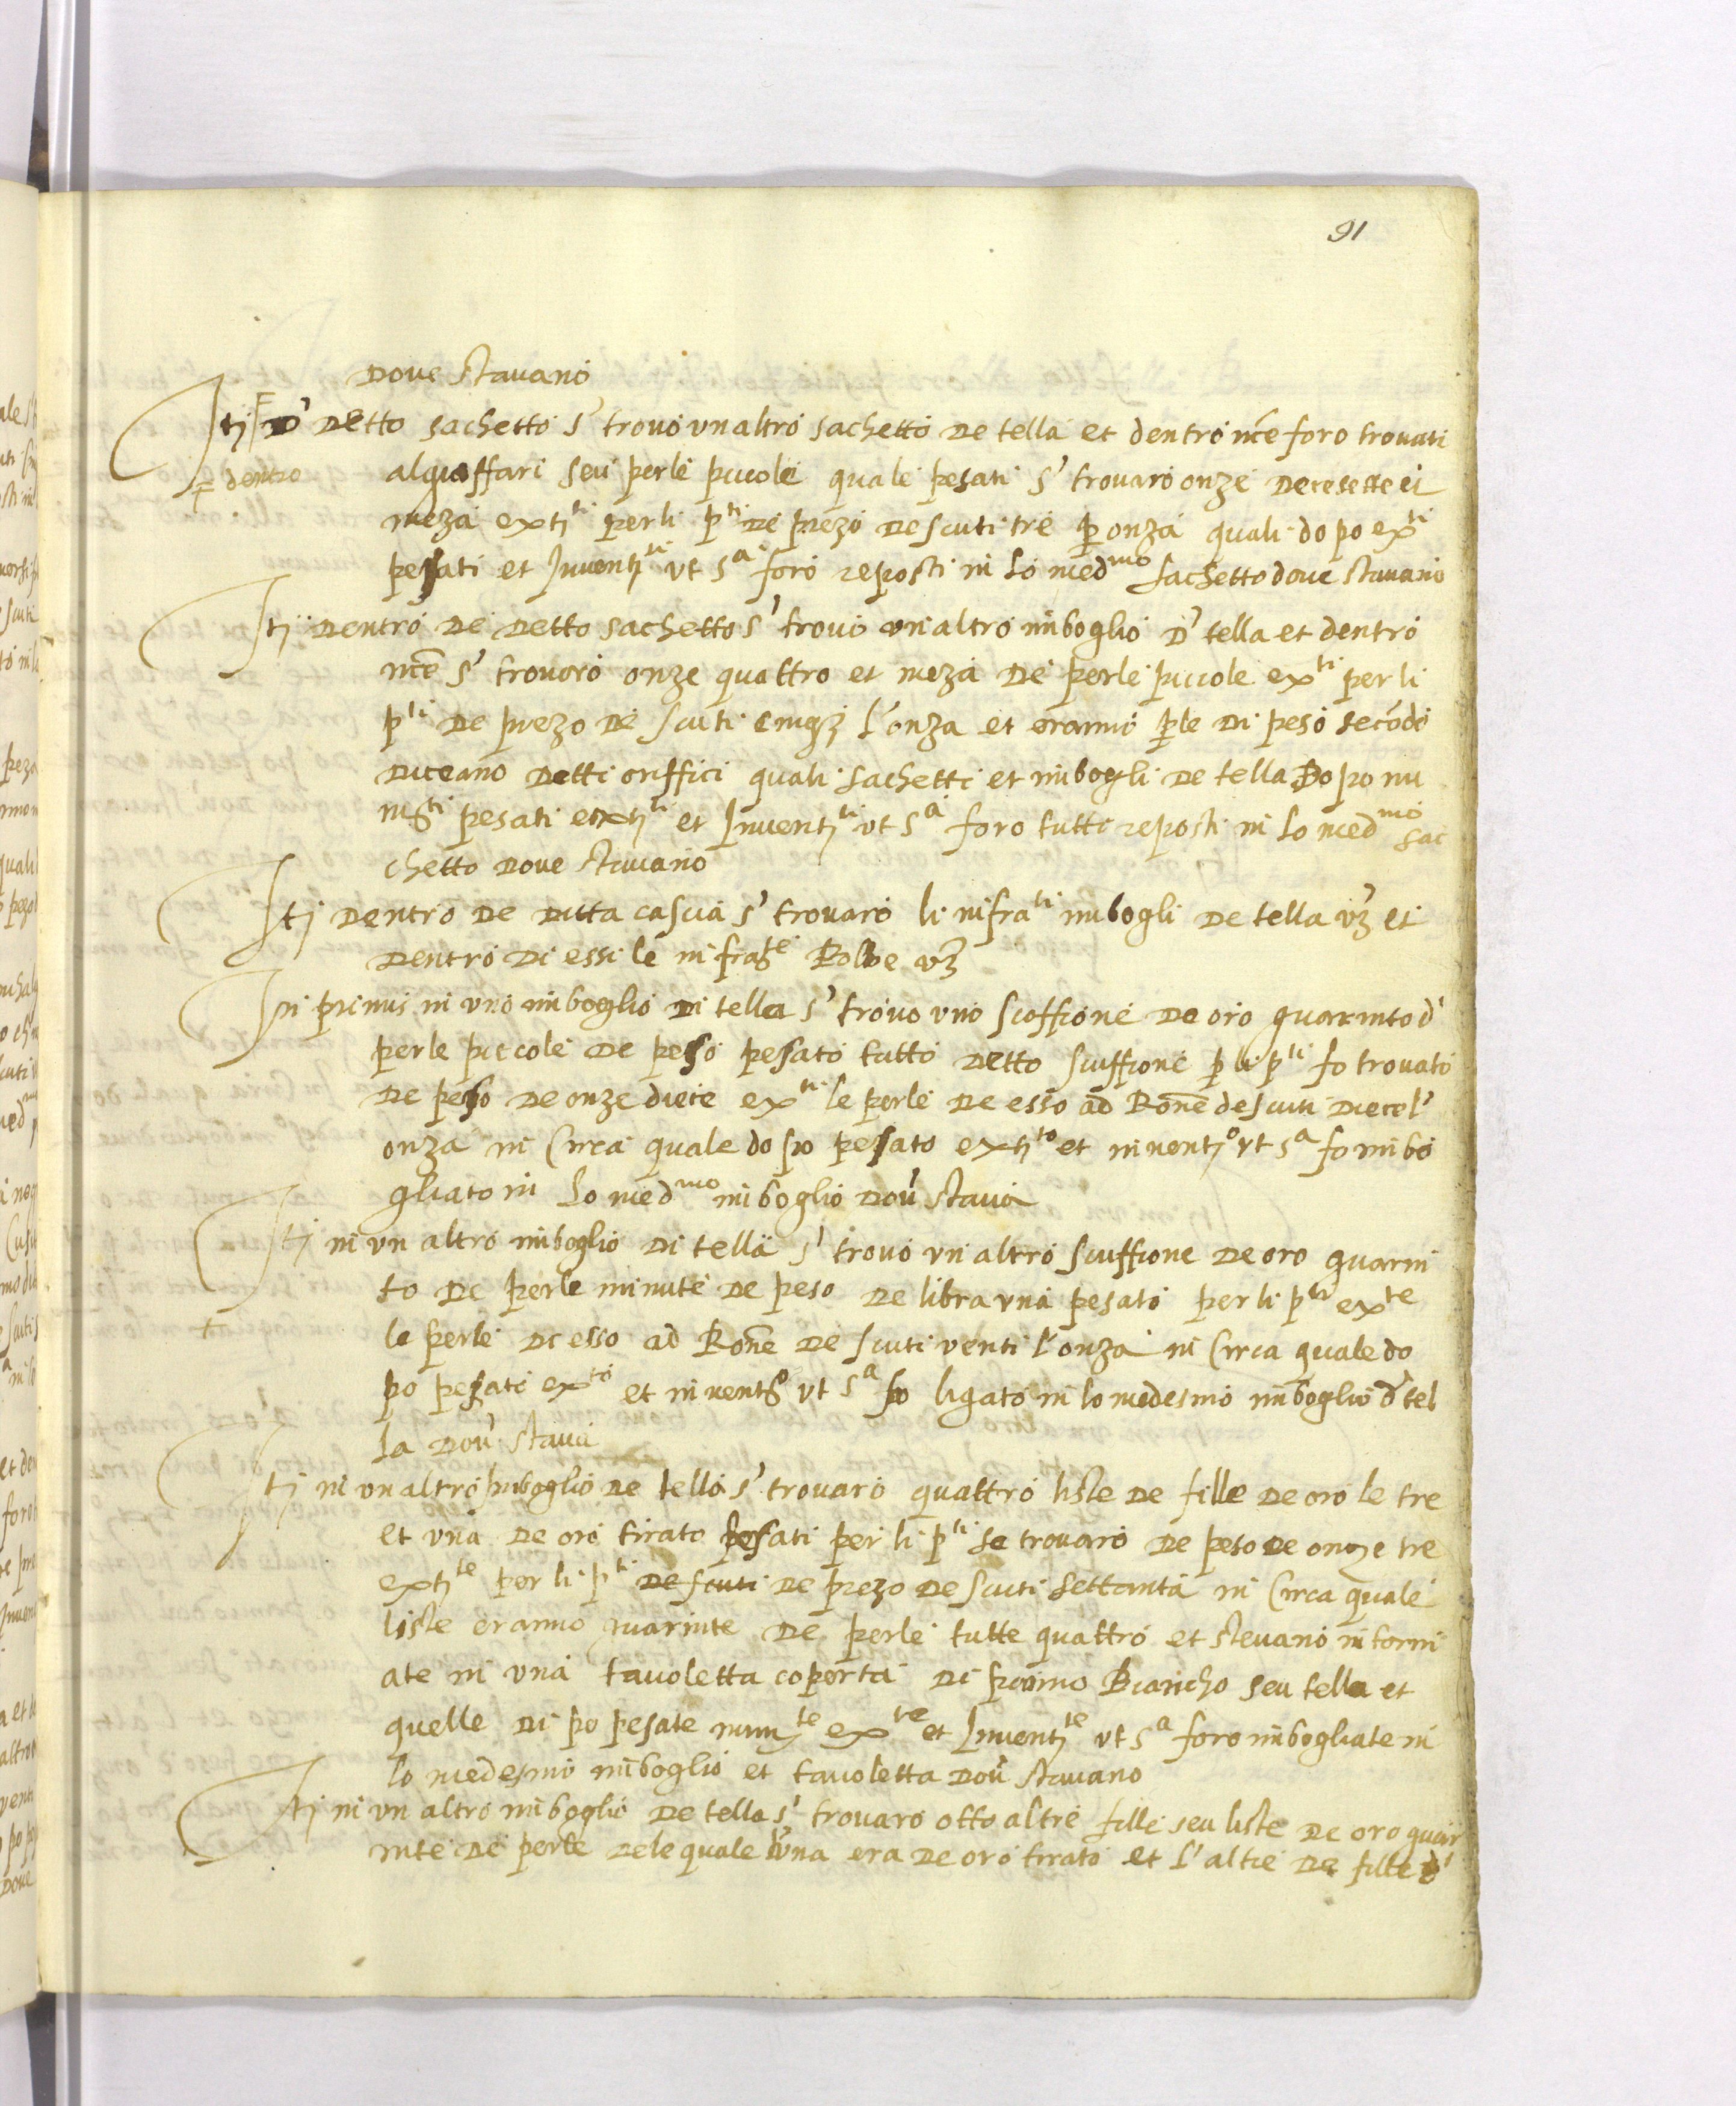 91
Dove stavano
Itj ⌜D' detto sachetto s' trovò un altro sachetto de tella et dentro nce foro trovati
⌜dentro
alguaffari seu perle piccole quale pesati s' trovaro onze decesette et
meza extj.ti per li p.ti de prezo de scuti tre p onza quali dopo ex.ti
pesati et Inventj.ti ut s.a foro reposti in lo med.mo sachetto dove stavano
Itj dentro de detto sachetto s' trovò un altro imboglio d' tella et dentro
nce s' trovoro onze quattro et meza de perle piccole ex.ti per li
p.ti de prezo de scuti cinq3 l'onza et eranno ple di peso secodo
diceano detti oriffici quali sachetti et imbogli de tella dopo nu
m.ti pesati extj.ti et Inventj.ti ut s.a foro tutti reposti in lo med.mo sac
chetto dove stavano
Itj dentro de ditta cascia s' trovaro li infra.ti imbogli de tella vz et
dentro di essi le infra.te Robbe vz
In primis in uno imboglio di tella s' trovo uno scoffione de oro guarinto d'
perle piccole de peso pesato tutto detto scuffione p li p.ti fo trovato
de peso de onze diece ex.ti le perle de esso ad Rone de scuti diece l'
onza in Circa quale dopo pesato extj.to et inventj.o ut s.a fo imbo
gliato in lo med.mo imboglio dov' stava
Itj in un altro imboglio di tella s' trovò un altro scuffione de oro guarni
to de perle minute de peso de libra una pesato per li p.ti ex.te
le perle de esso ad Rone de scuti venti l'onza in Circa quale do
po pesato ex.to et invent.o ut s.a fo ligato in lo medesmo imboglio d' tel
la dov' stava
Itj in un altro Imboglio de tella s' trovaro quattro liste de fille de oro le tre
et una de oro tirato pesati per li p.ti se trovaro de peso de onze tre
extj.te per li p.ti de scuti de prezo de scuti settanta in Circa quale
liste eranno guarinte de perle tutte quattro et stevano intorni
ate in una tavoletta coperta di panno Biancho seu tella et
quelle di po pesate num.te ex.te et Inventj.te ut s.a foro imbogliate in
lo medesmo imboglio et tavoletta dov' stavano
Itj in un altro imboglio de tella s' trovaro otto altre fille seu liste de oro guar
inte de perle dele quale l'una era de oro tirato et l'altre de fille d'